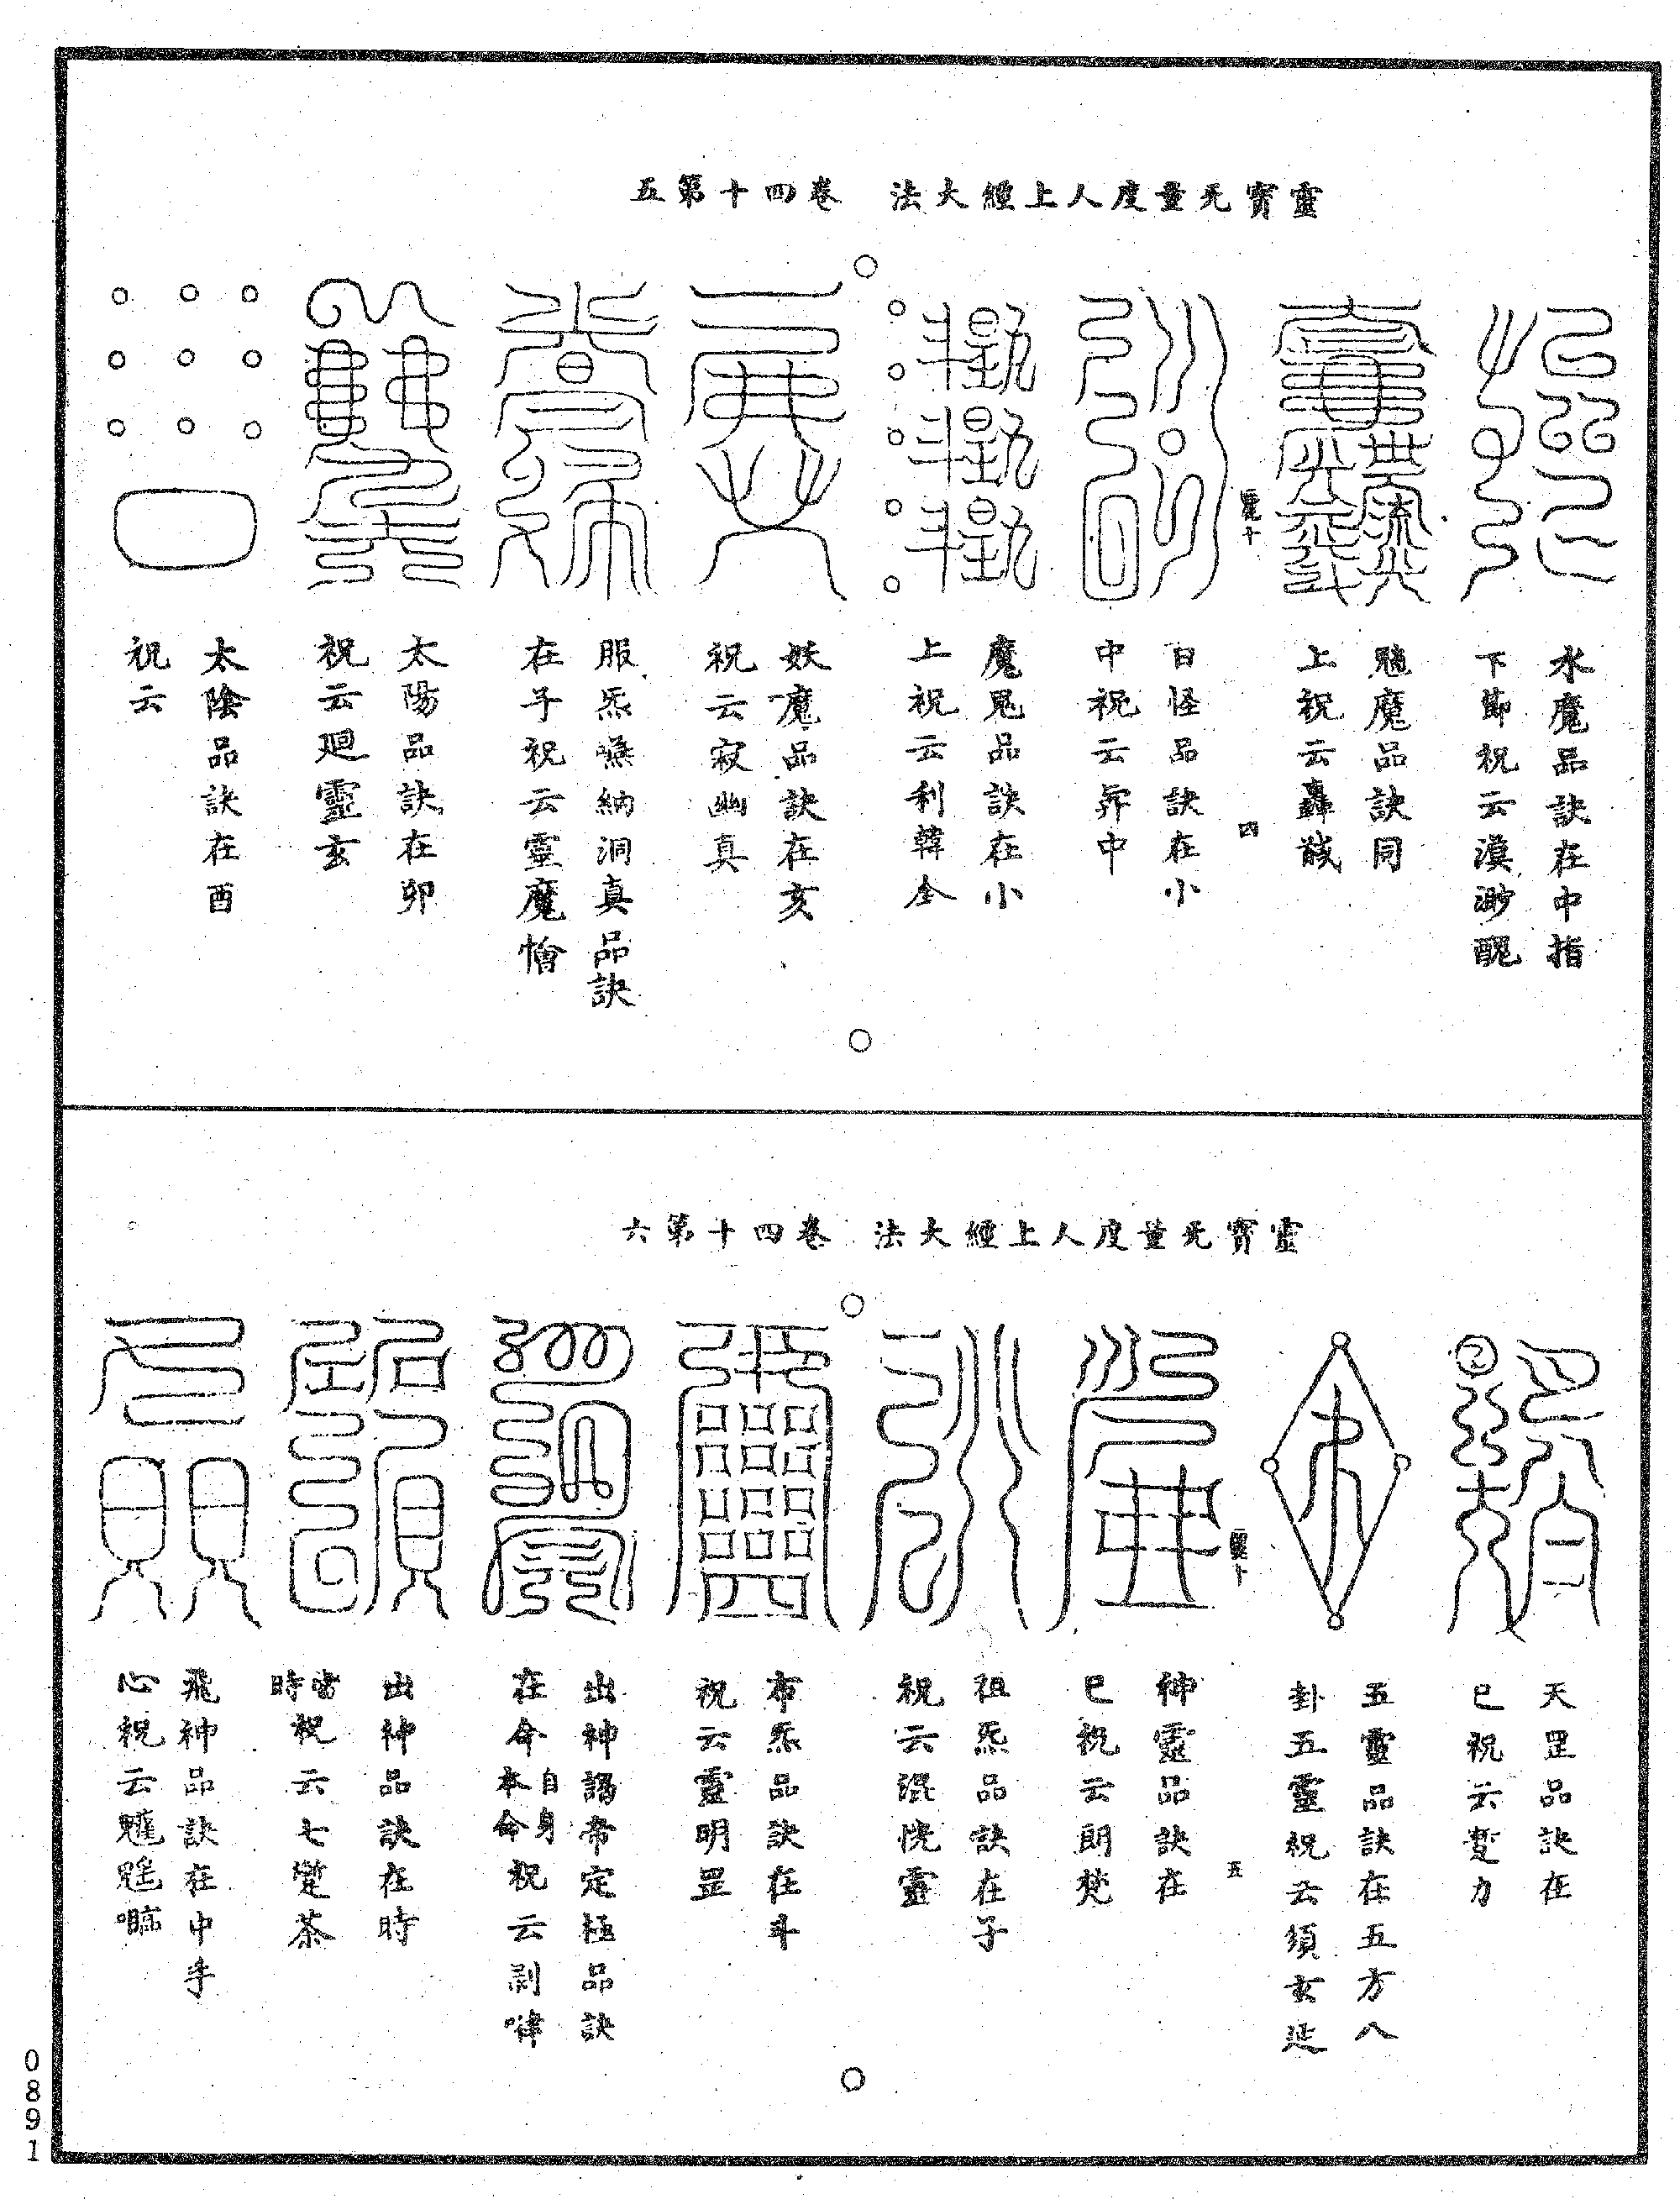 靈寶无量度人上經大法 卷四十第五
水魔品訣在中指
下節祝云漠渺醜
魔品訣同
上祝云轟
四
日怪品訣在小
中祝云昇中
魔鬼品訣在小
上祝云利韓全
妖魔品訣在亥
祝云寂幽真
服炁嚥納洞真品訣
在子祝云靈魔懀
太陽品訣在卯
祝云廻靈玄
太陰品訣在酉
祝云
靈寶无量度人上經大法 卷四十第六
天罡品訣在
巳祝云力
五靈品訣在五方八
卦五靈祝云須女延
五
神靈品訣在
巳祝云朗梵
祖炁品訣在子
祝云混恍靈
布炁品訣在斗
祝云靈明罡
出神謁帝定極品訣
在命自身本命祝云㗚
出神品訣在時
當時祝云七茶
飛神品訣在中手
心祝云
0891